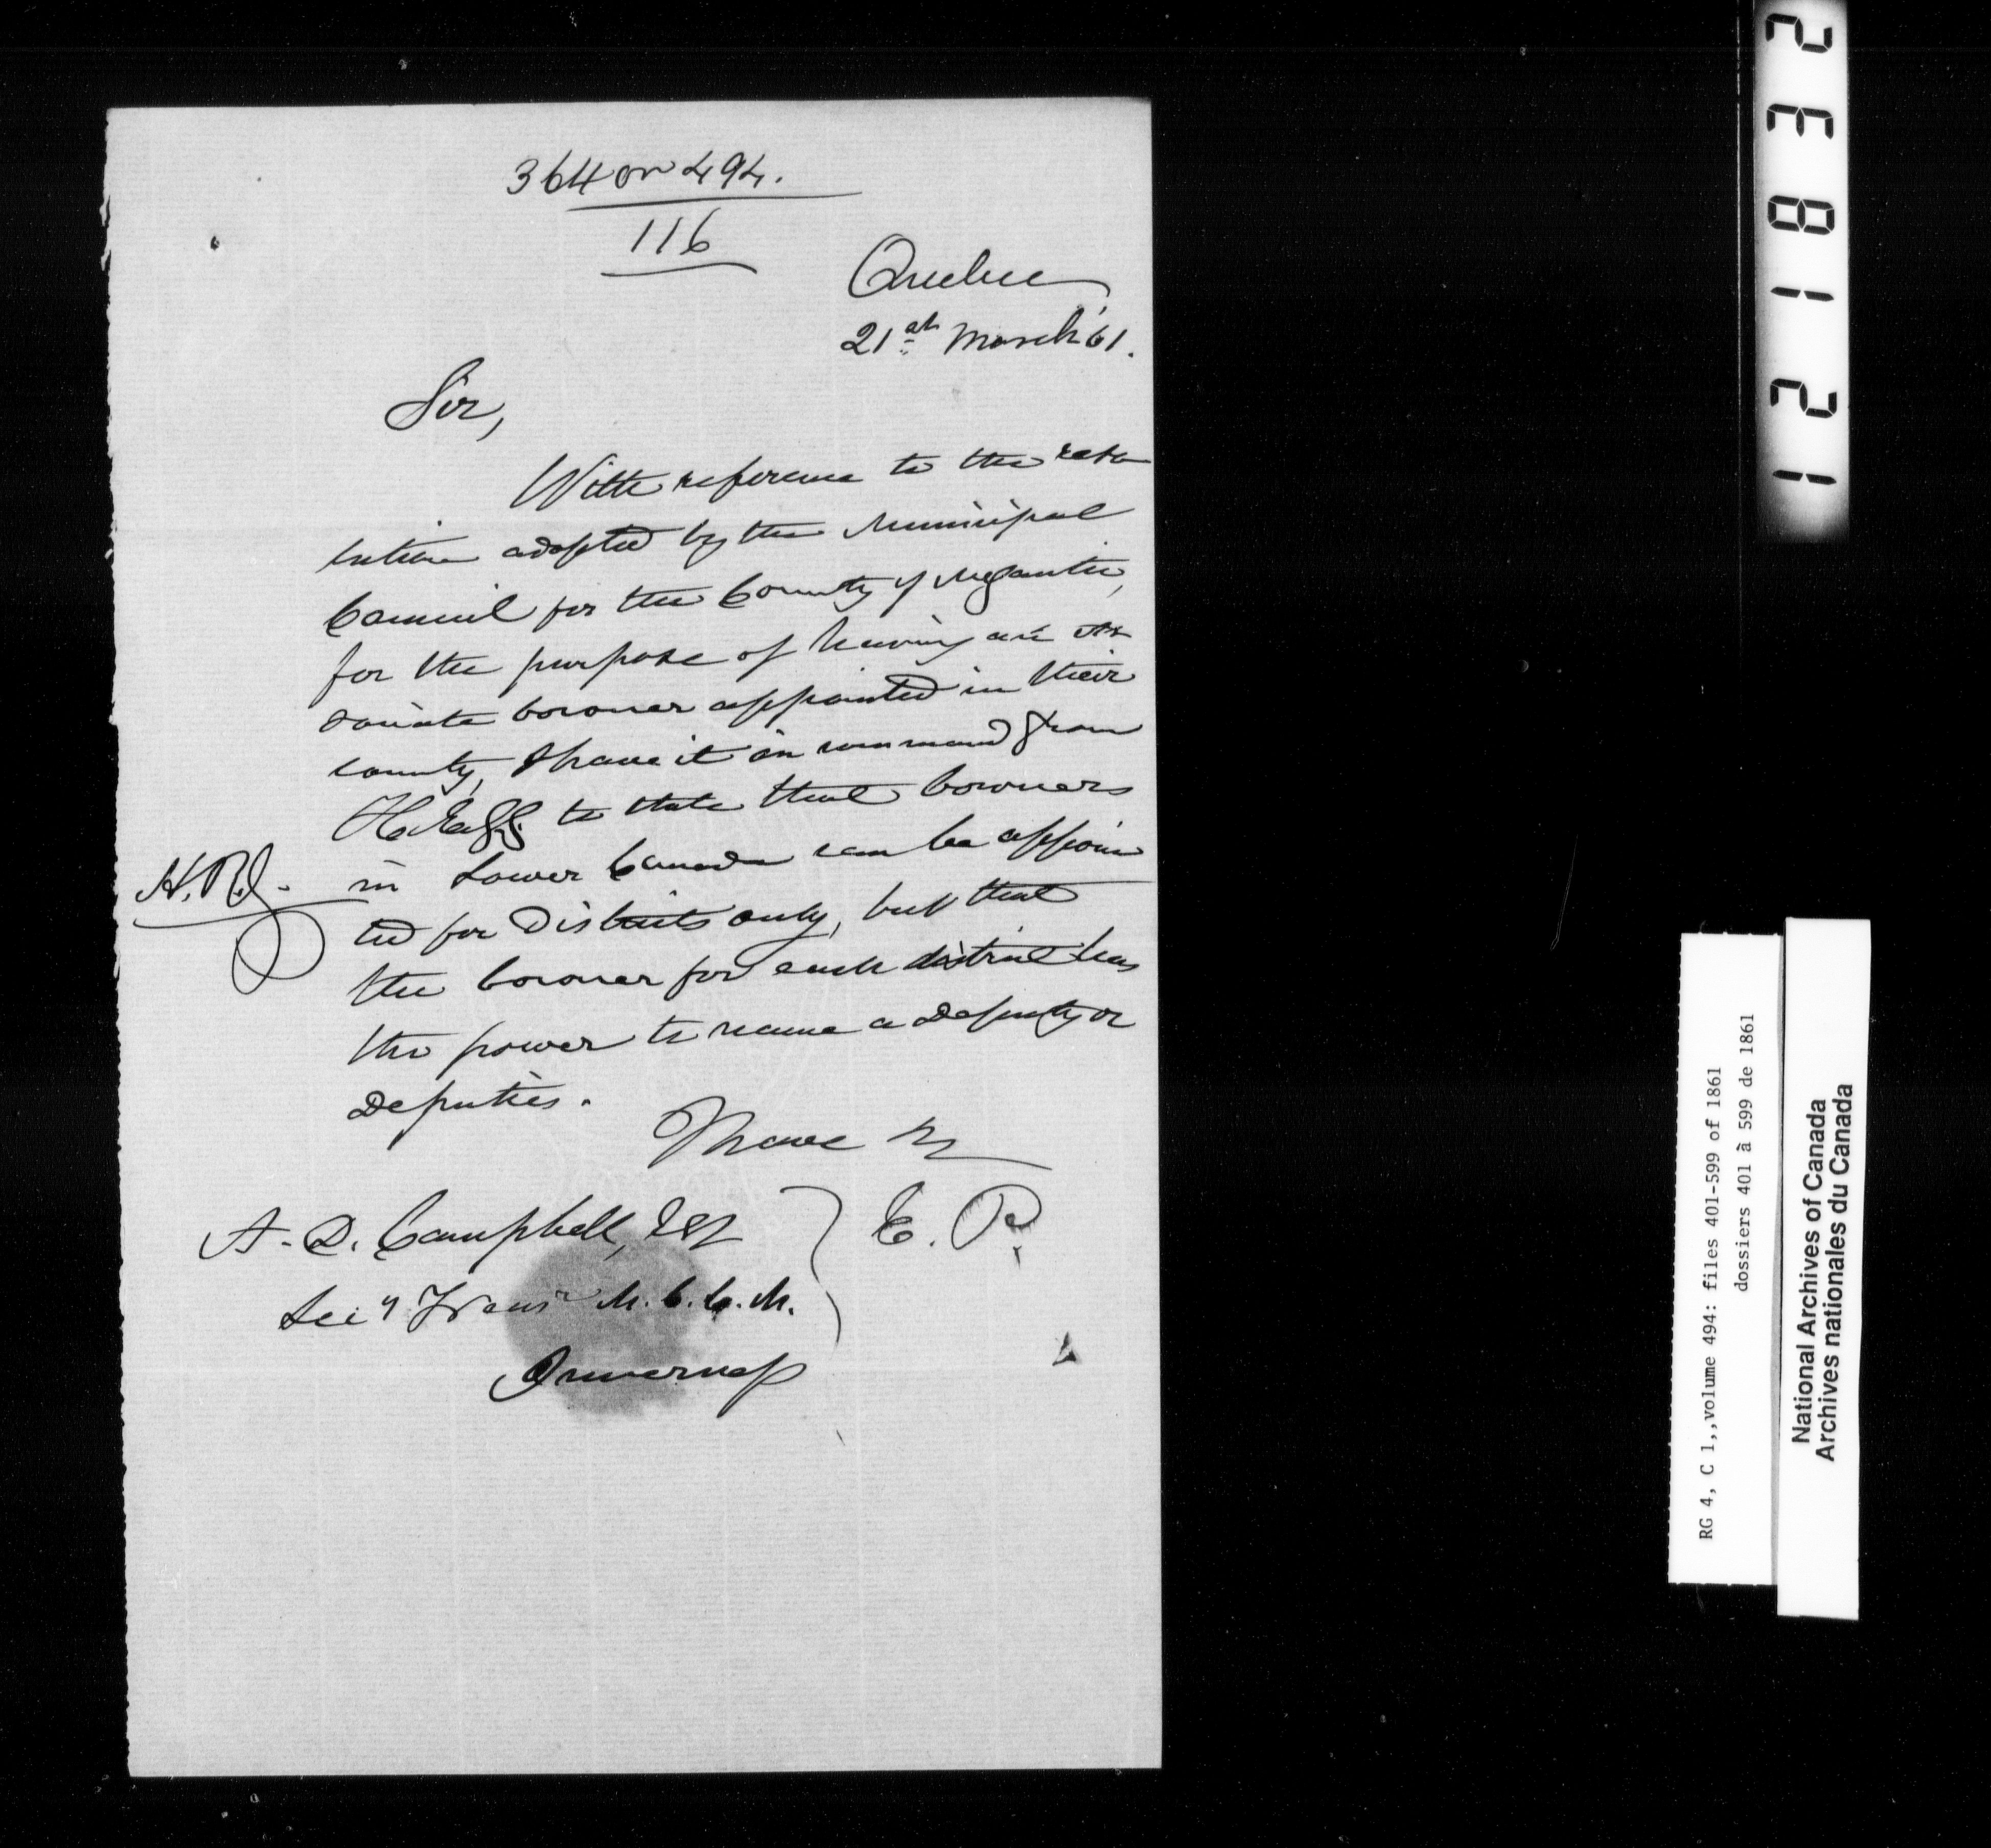 364 on 494.
116
Quebec
21st March '61.
Sir,
With reference to the reso
lution adopted by the Municipal
Council for the County of Megantic,
for the purpose of having an As
sociate Coroner appointed in their
county, I have it in command from
H. Excy. to state that Coroners
in Lower Canada can be appoin
ted for Districts only, but that
the Coroner for each district has
the power to name a Deputy or
Deputies.
I have &c
A. D. Campbell, Esq
Secy Treasr M.C.C.M.
Inverness
E. P.
12 18 32
RG 4, C 1,,volume 494: files 401-599 of 1861
dossiers 401 à 599 de 1861
National Archives of Canada
Archives nationales du Canada